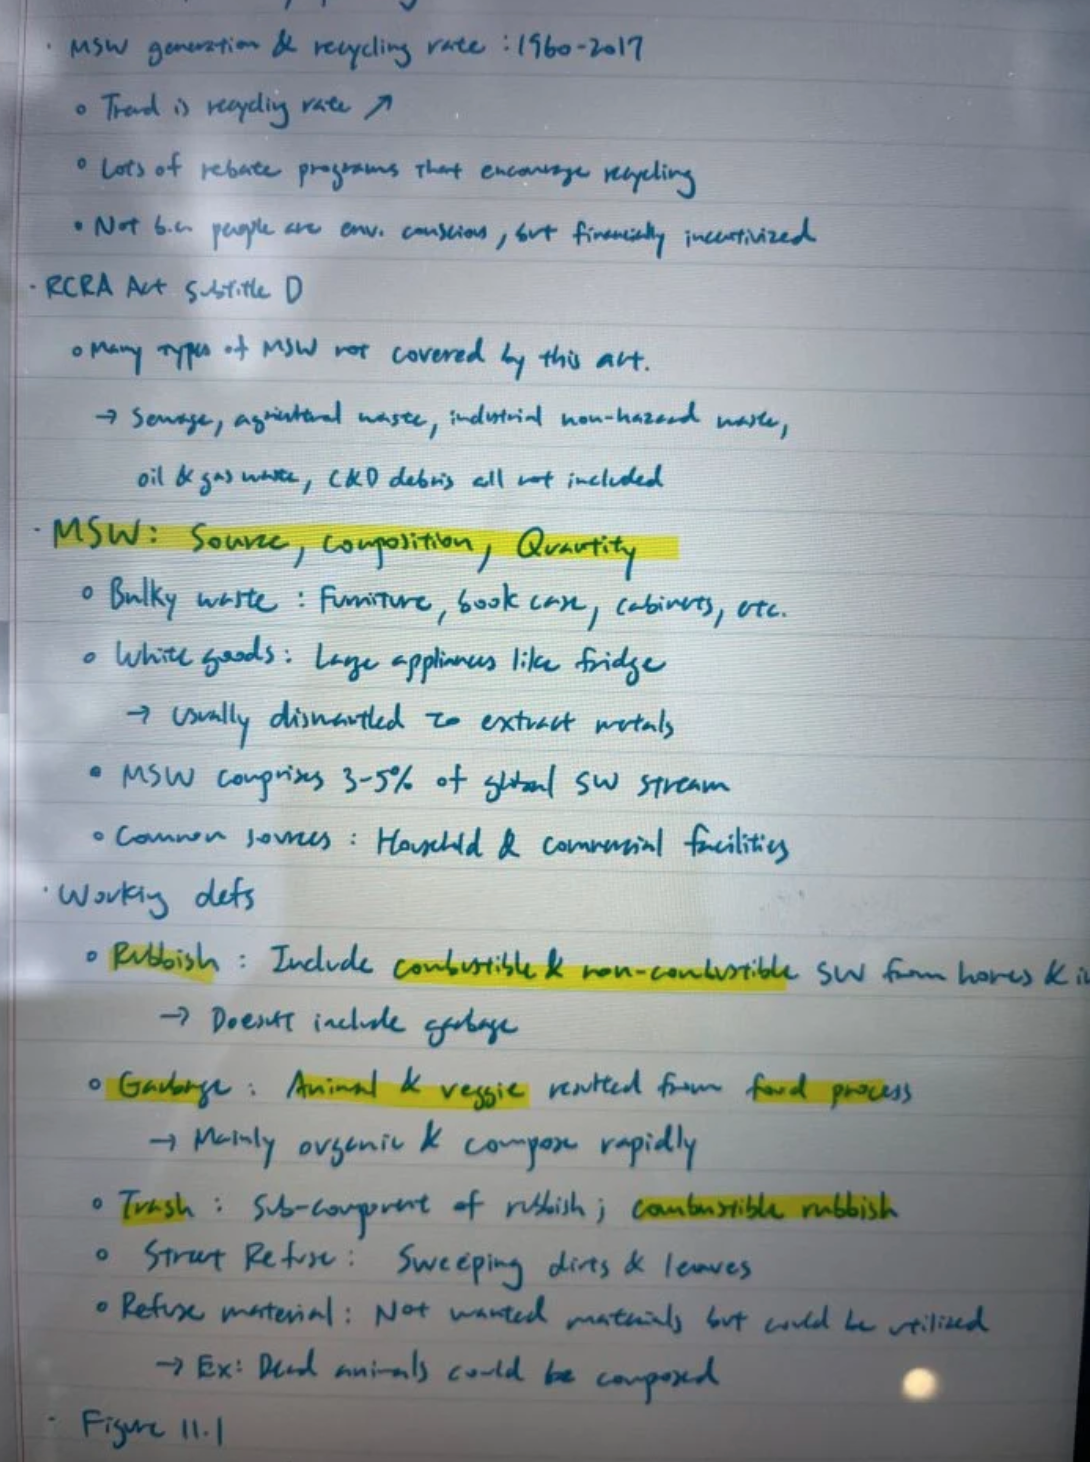 · MSW generation & recycling rate : 1960-2017
○ Trend is recycling rate ↗
○ Lots of rebate programs that encourage recycling
• Not b.c. people are env. conscious, but financially incentivized
· RCRA Act Subtitle D
○ Many types of MSW not covered by this act.
→ Sewage, agricultural waste, industrial non-hazard waste,
oil & gas waste, C&D debris all not included
· MSW: Source, Composition, Quantity
○ Bulky waste : Furniture, book case, cabinets, etc.
○ White goods: Large appliances like fridge
→ Usually dismantled to extract metals
• MSW comprises 3-5% of global SW stream
○ Common sources : Household & commercial facilities
· Working defs
○ Rubbish : Include combustible & non-combustible SW from homes &
→ Doesn't include garbage
○ Garbage : Animal & veggie resulted from food process
→ Mainly organic & compose rapidly
○ Trash : Sub-component of rubbish ; combustible rubbish
○ Street Refuse : Sweeping dirts & leaves
○ Refuse material : Not wanted materials but could be utilized
→ Ex: Dead animals could be composed
· Figure 11.1